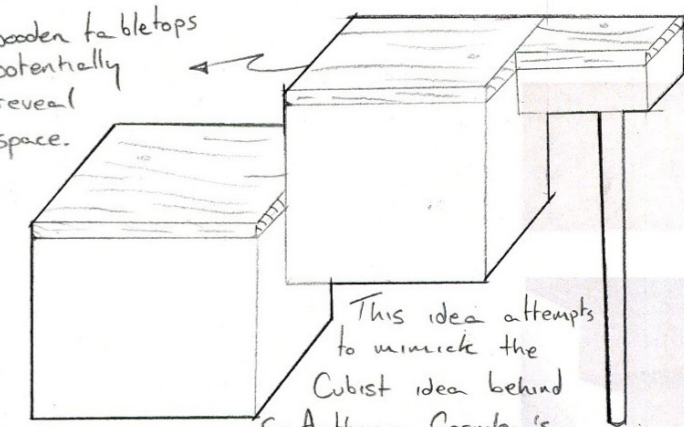 wooden tabletops
potentially
reveal
space.
This idea attempts
to mimick the
Cubist idea behind